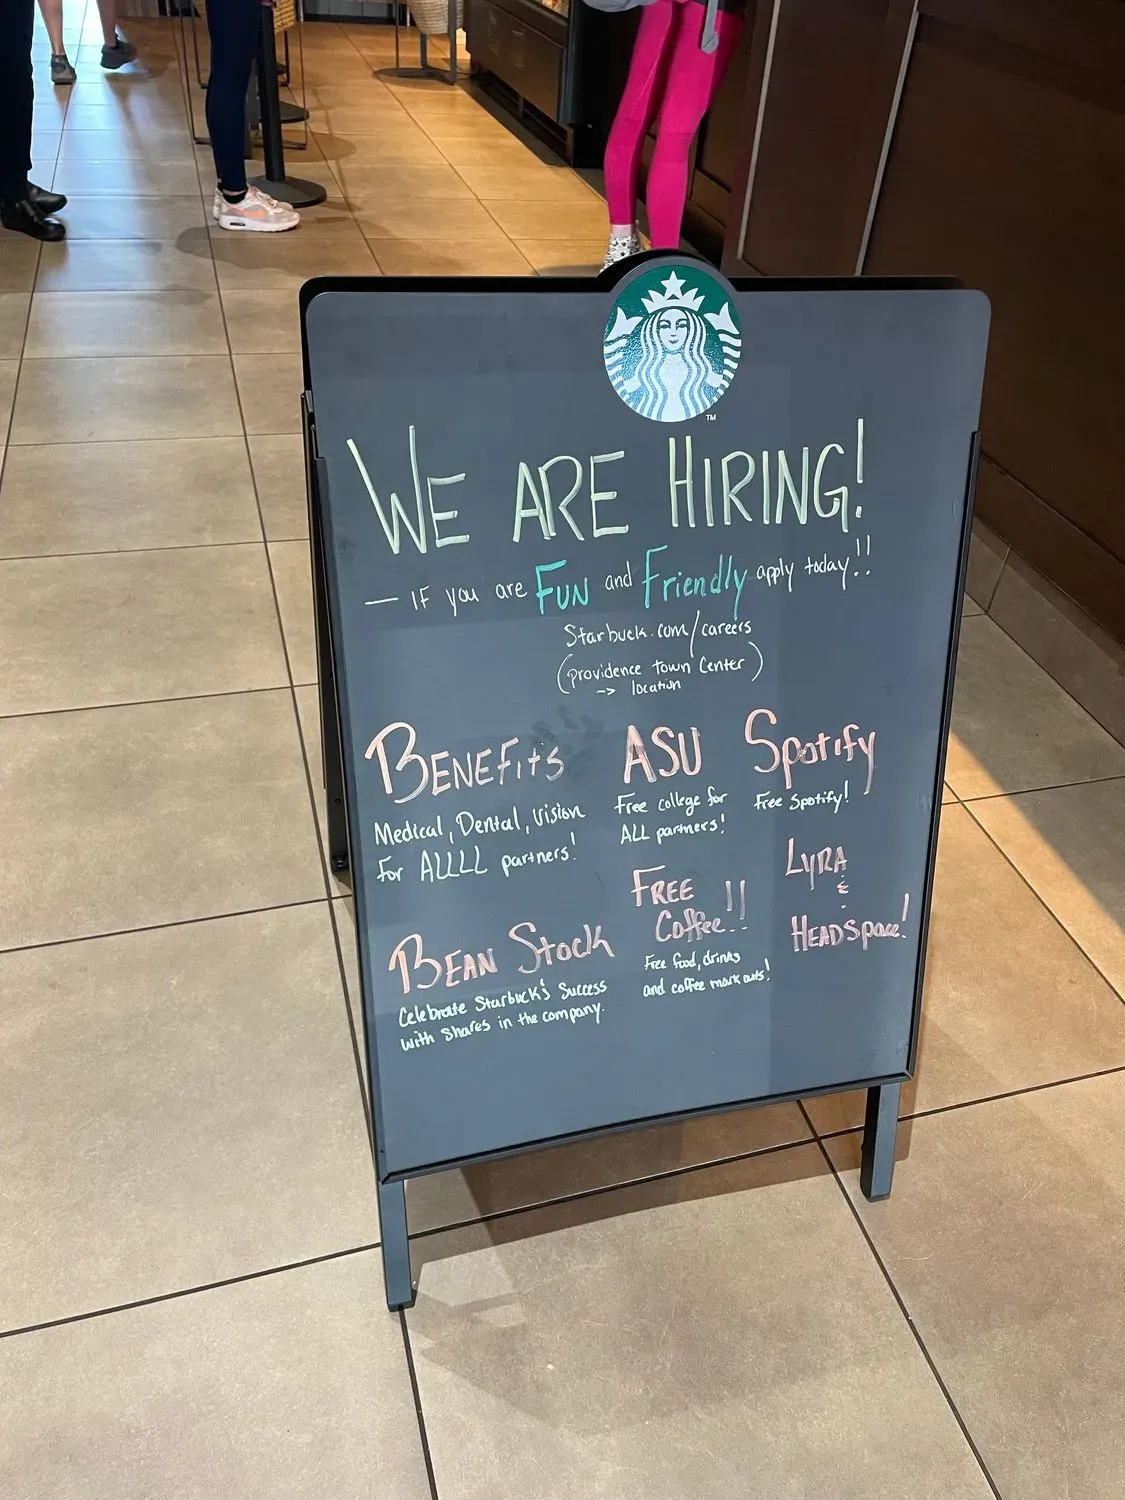 TM
WE ARE HIRING!
— IF you are FUN and Friendly apply today!!
Starbuck.com/careers
(providence town Center)
-> location
BENEFitS
Medical, Dental, Vision
for ALLLL partners!
ASU
Free college for
ALL partners!
Spotify
Free Spotify!
BEAN Stock
Celebrate Starbuck's Success
with Shares in the company.
FREE
Coffee!!
Free food, drinks
and coffee mark outs!
LYRA
&
HEADSpace!